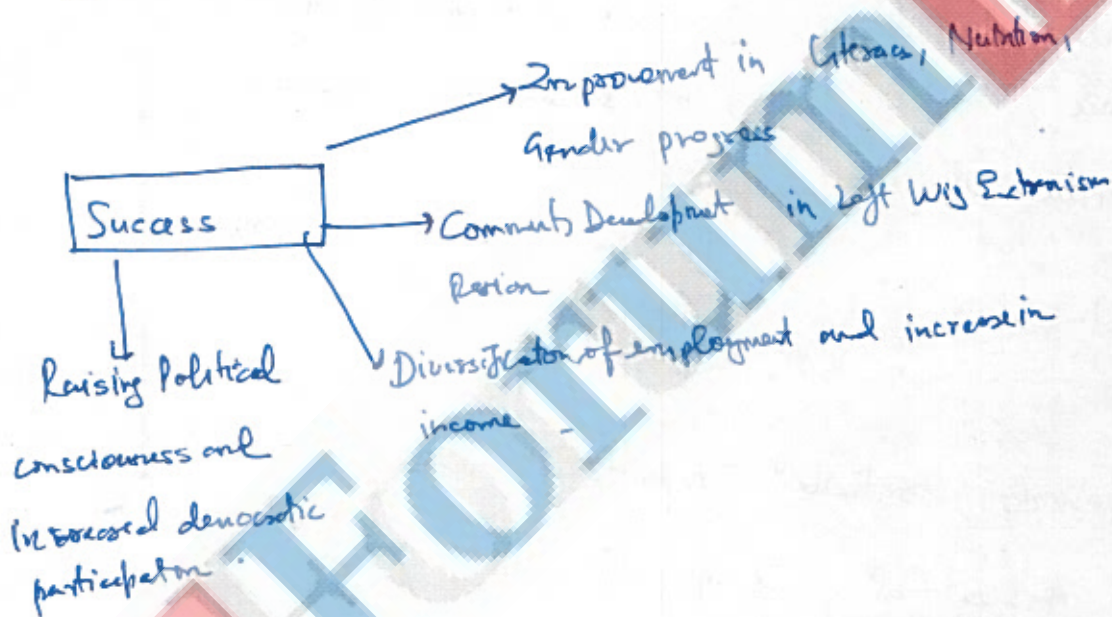 Improvement in Literacy, Nutrition,
Gender progress
Success
Community Development in Left Wing Extremism
Region
Diversification of employment and increase in
income
Raising Political
consciousness and
increased democratic
participation.
Forum